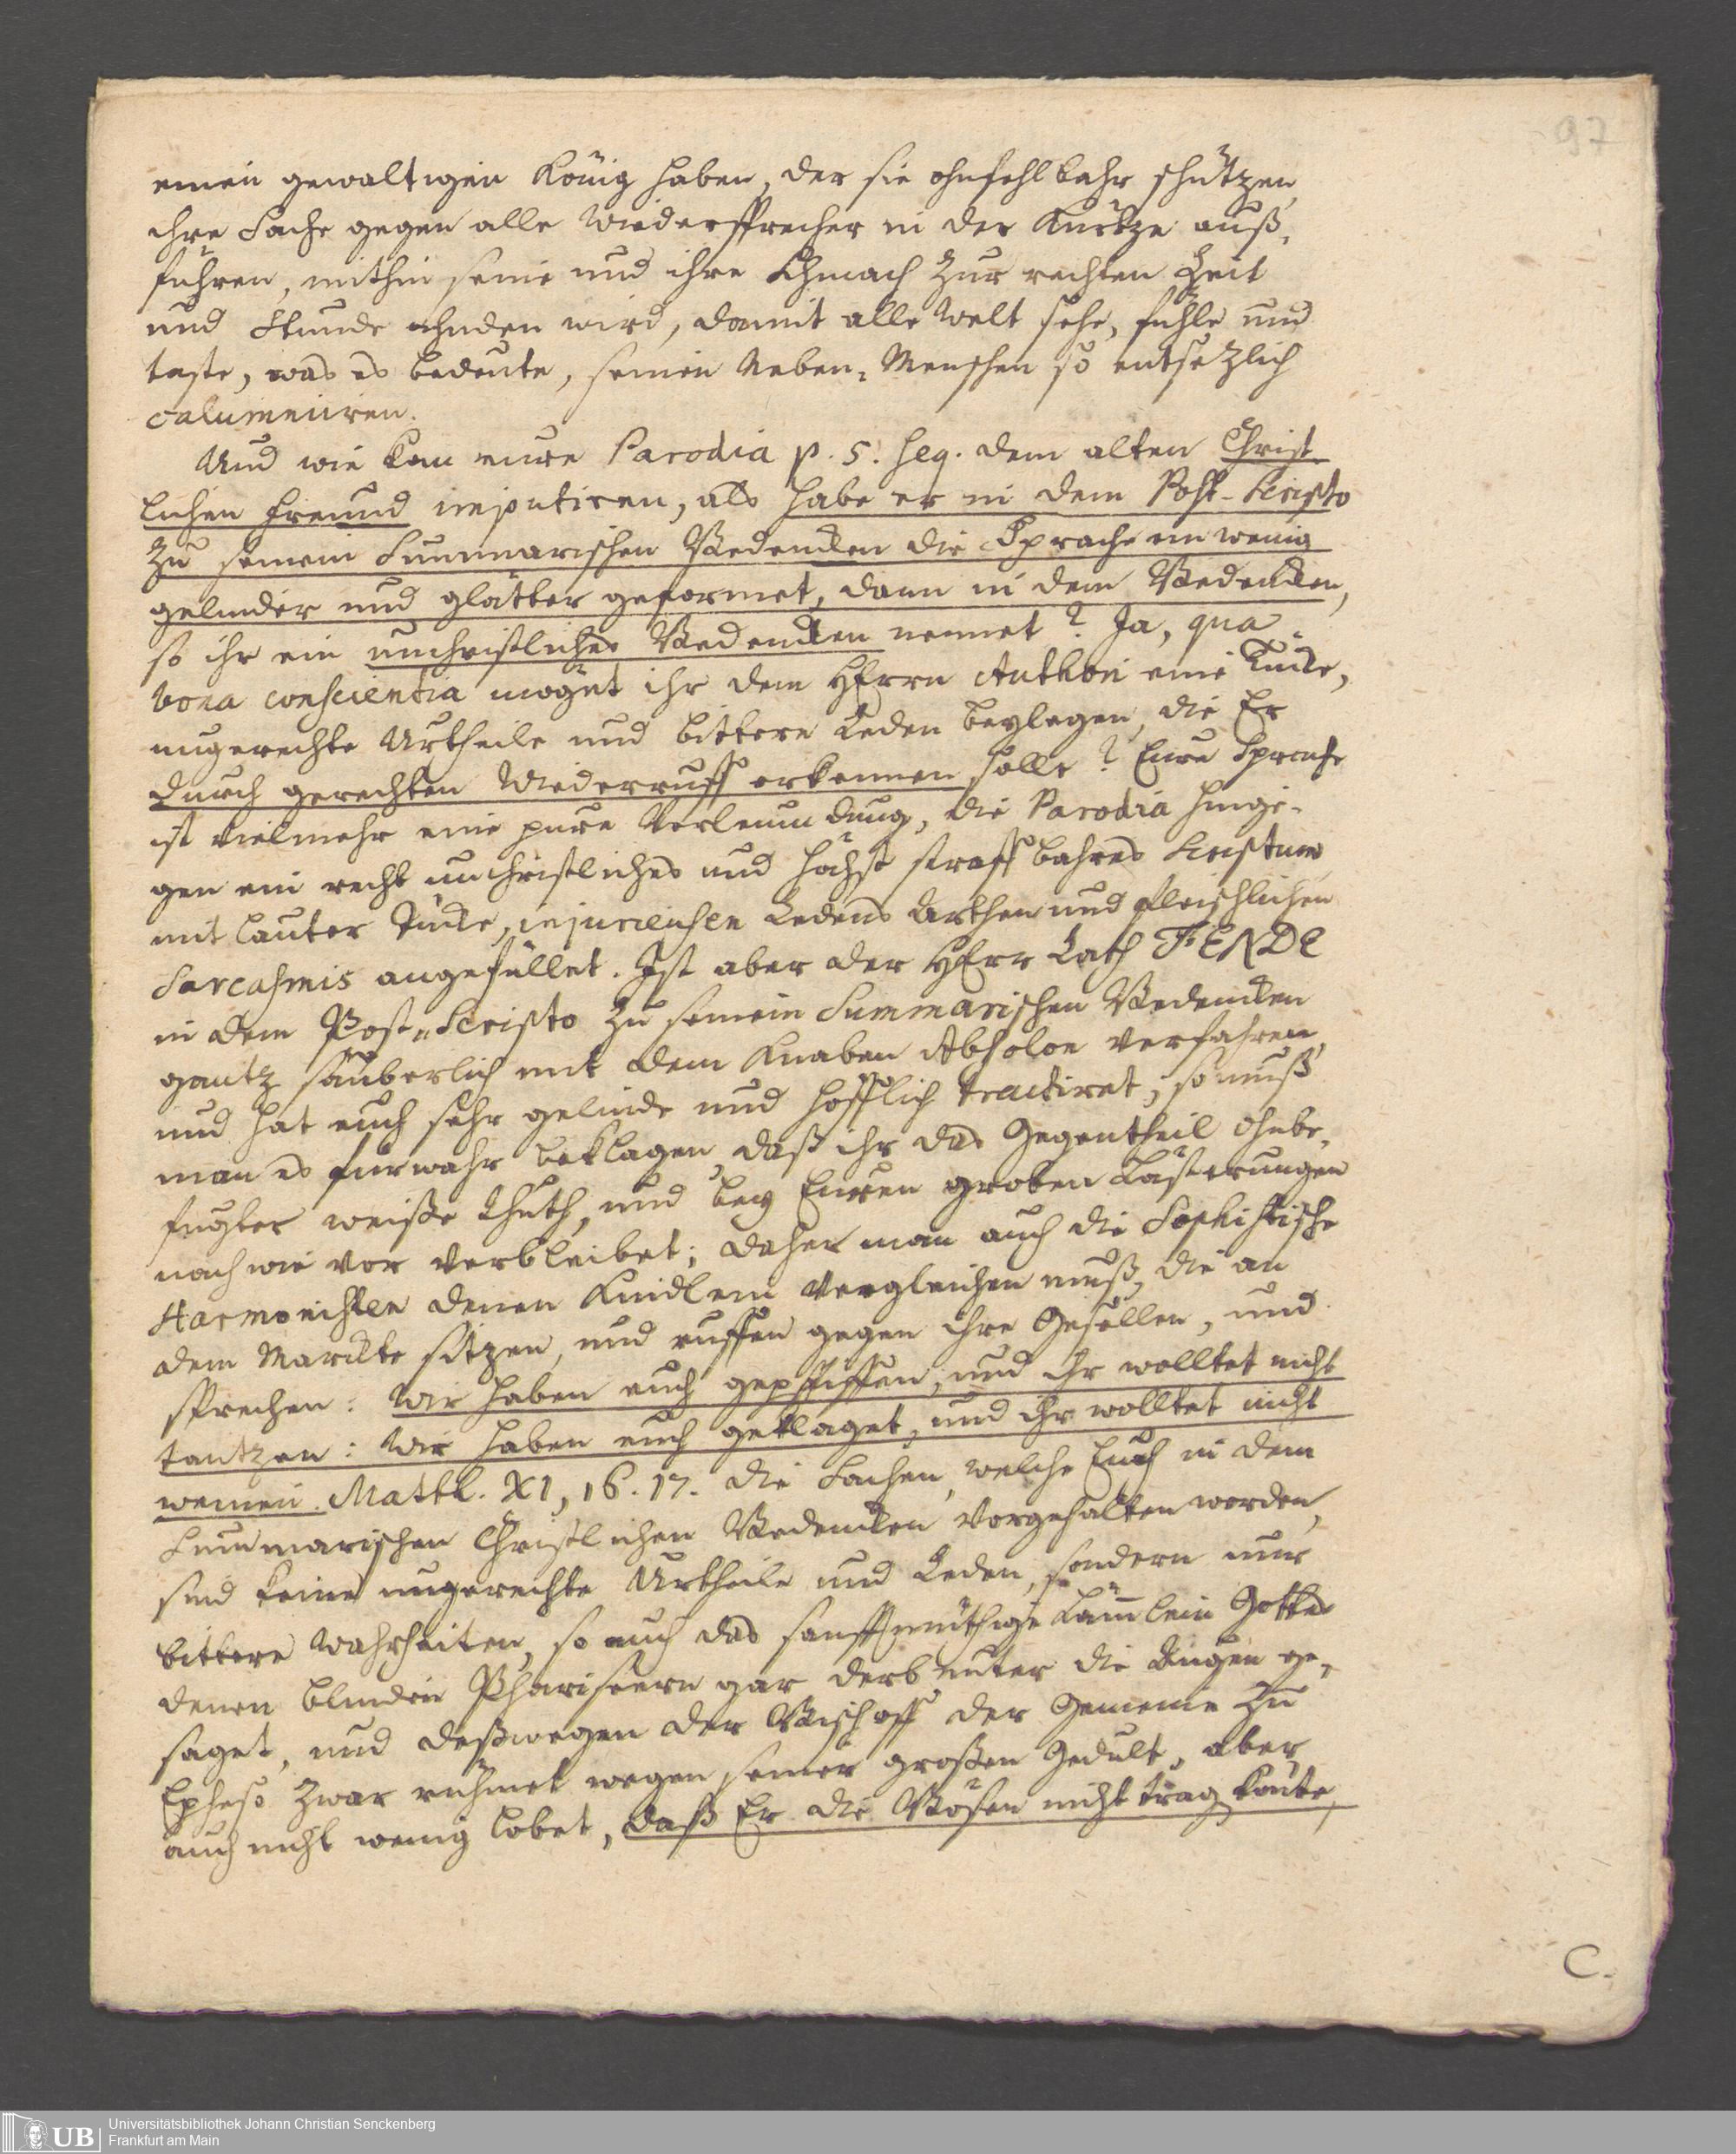 97
einen gewaltigen König haben, der sie ohnfehlbahr schützen,
ihre Sache gegen alle Wiedersprecher in der Kürtze auß-
führen, mithin seine und ihre Schmach zur rechten Zeit
und Stunde ahnden wird, damit alle Welt sehe, fühle und
taste, was es bedeute, seinen Neben-Menschen so entsetzlich
calumniiren.
Und wie kan eure Parodia p. 5. seq. dem alten Christ-
lichen Freund imputiren, als habe er in dem Post-Scripto
zu seinem Summarischen Bedencken die Sprache ein wenig
gelinder und glätter geformet, dann in dem Bedencken,
so ihr ein unchristliches Bedencken nennet? Ja, qua
bona conscientia möget ihr dem HErrn Authori eine Tücke,
ungerechte Urtheile und bittere Reden beylegen, die Er
durch gerechten Wiederruff erkennen solle? Eure Sprache
ist vielmehr eine pure Verleumbdung, die Parodia hinge-
gen ein recht unchristliches und höchst straffbahres Scriptum
mit lauter Tücke, injurieusen Redens Arthen und fleischlichen
Sarcasmis angefüllet. Ist aber der HErr Rath FENDE
in dem Post-Scripto zu seinem Summarischen Bedencken
gantz säuberlich mit dem Knaben Absolon verfahren,
und hat euch sehr gelinde und höfflich tractiret, so muß
man es fürwahr beklagen, daß ihr das Gegentheil ohnbe-
fugter weiße thuth, und bey Euren groben Lästerungen
nach wie vor verbleibet; daher man auch die Sophistische
Harmonisten denen Kindlein vergleichen muß, die an
dem Marckte sitzen, und ruffen gegen ihre Gesellen, und
sprechen: Wir haben euch gepfiffen, und ihr wolltet nicht
tantzen: Wir haben euch geklaget, und ihr wolltet nicht
weinen. Matth. XI, 16. 17. Die Sachen, welche Euch in dem
Summarischen Christlichen Bedencken vorgehalten worden,
sind keine ungerechte Urtheile und Reden, sondern nur
bittere Wahrheiten, so auch das sanfftmüthige Lämlein Gottes
denen blinden Phariseern gar derb unter die Augen ge-
saget, und deßwegen der Bischoff der Gemeine zu
Epheso zwar rühmet wegen seiner großen Gedult, aber
auch nicht wenig lobet, daß Er die Bösen nicht trag könte,
C.
UB
Universitätsbibliothek Johann Christian Senckenberg
Frankfurt am Main